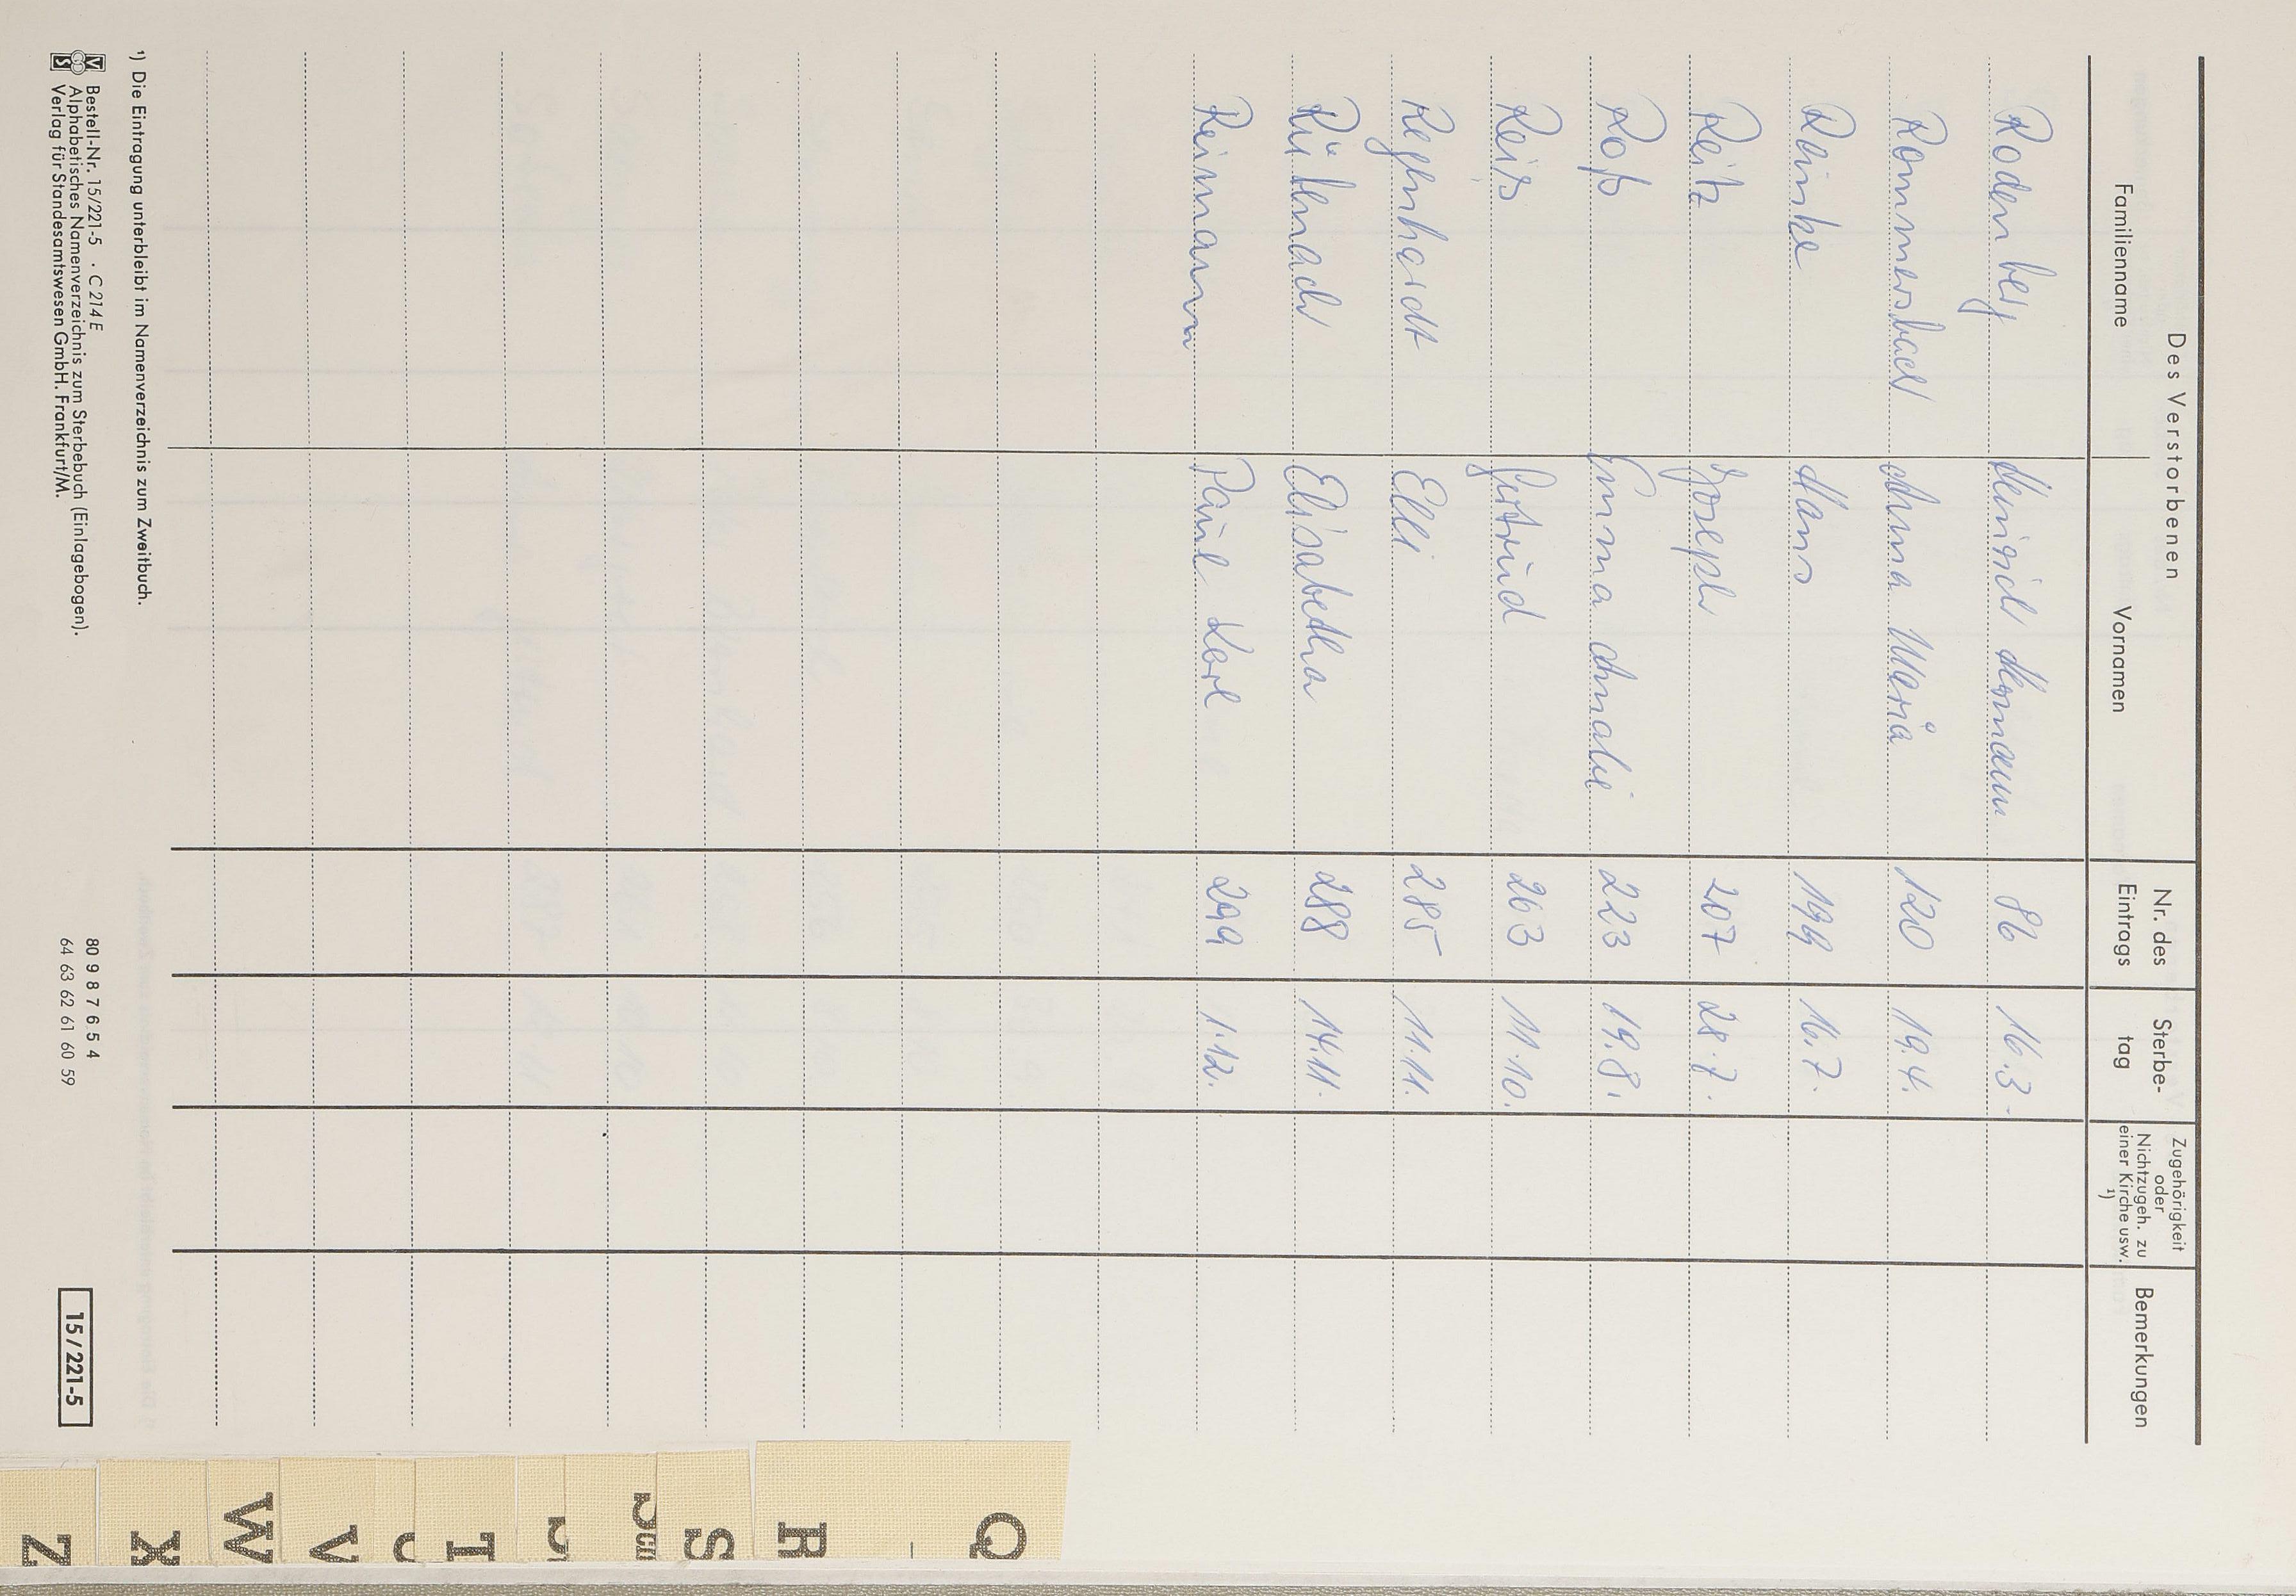 Des Verstorbenen
Familienname Vornamen Nr. des Eintrags Sterbe-tag Zugehörigkeit oder Nichtzugeh. zu einer Kirche usw. ¹) Bemerkungen
Rodenberg Heinrich Hermann 86 16.3.
Rommersbach Anna Maria 120 19.4.
Reinke Hans 199 16.7.
Reitz Joseph 207 28.7.
Roß Emma Amalie 223 19.8.
Reiß Gertrud 263 11.10.
Regenhardt Elli 285 11.11.
Rüttnach Elisabetha 288 14.11.
Reimann Paul Karl 299 1.12.
¹) Die Eintragung unterbleibt im Namenverzeichnis zum Zweitbuch.
Bestell-Nr. 15/221-5 . C 214 E
Alphabetisches Namenverzeichnis zum Sterbebuch (Einlagebogen).
Verlag für Standesamtswesen GmbH. Frankfurt/M.
80 9 8 7 6 5 4
64 63 62 61 60 59
15/221-5
Q
R
S
Sch
T
V
W
X
Z